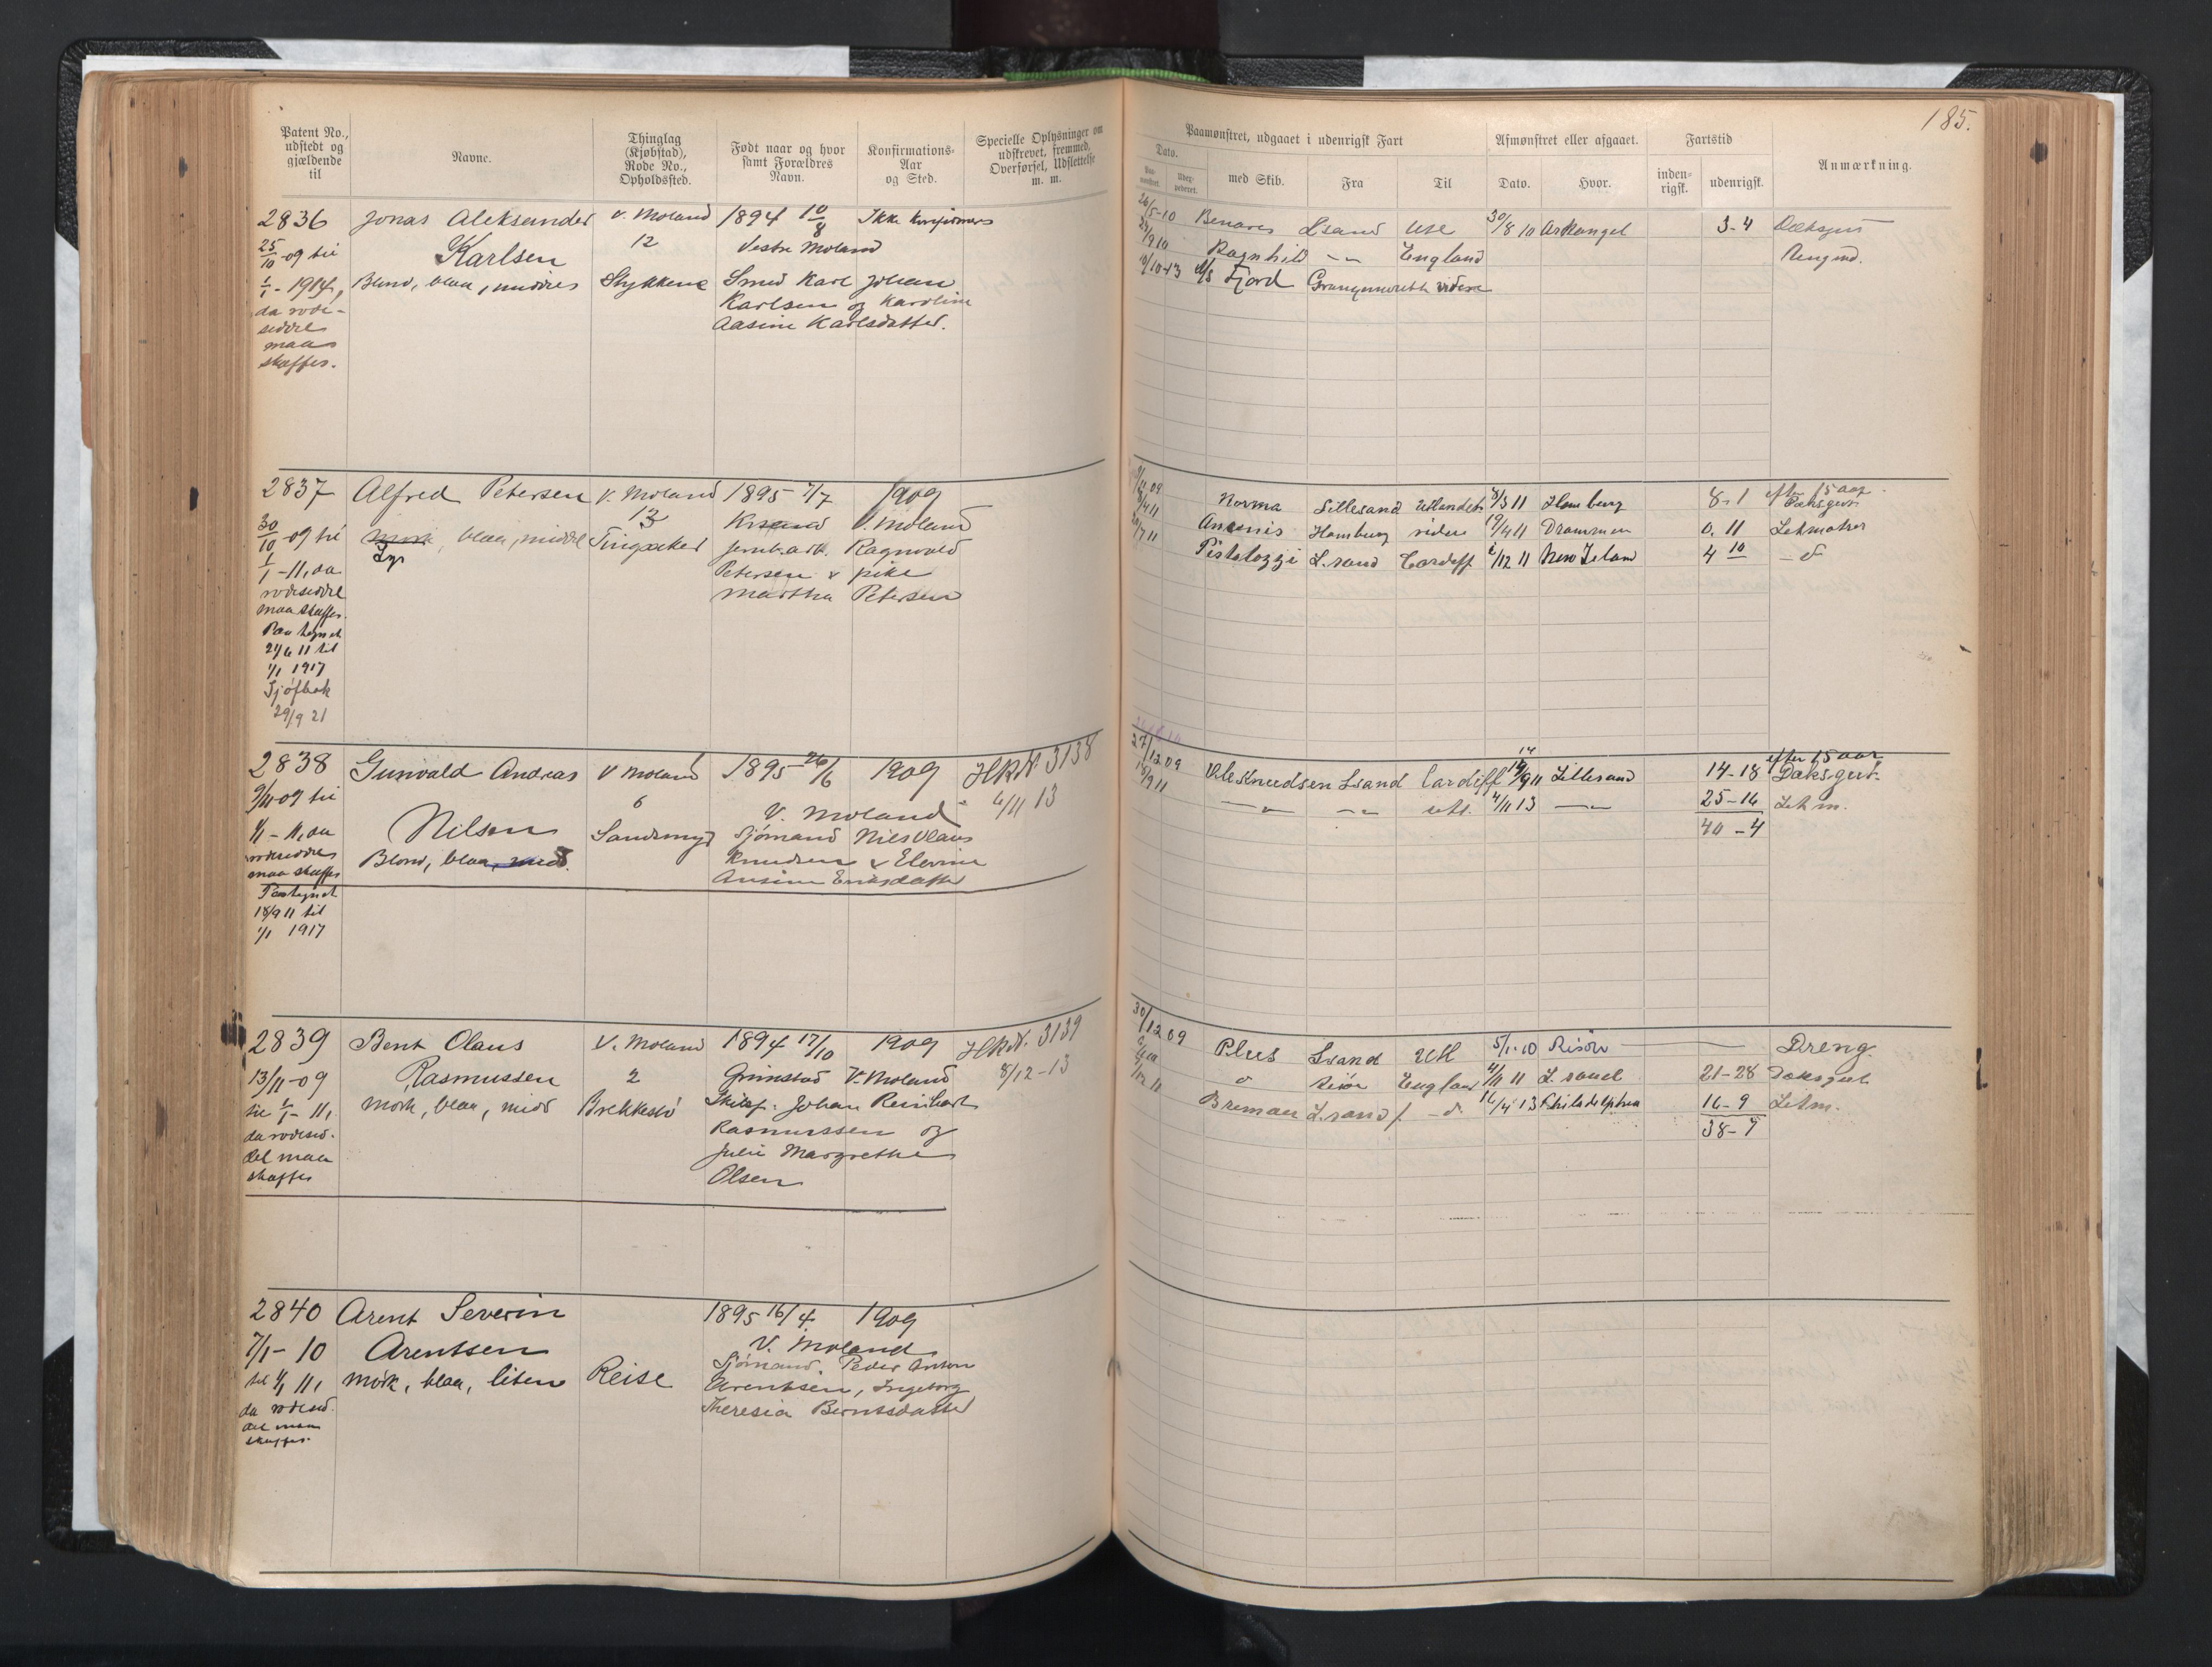 185.
Patent No., udstedt og gjældende til
Navne.
Thinglag (Kjøbstad), Rode No., Opholdssted.
Født naar og hvor samt Forældres Navn.
Konfirmations-Aar og Sted.
Specielle Oplysninger om udskrevet, fremmed, Overførsel, Udslettelse m. m.
Paamønstret, udgaaet i udenrigsk Fart
Afmønstret eller afgaaet.
Fartstid
Anmærkning.
Dato.
med Skib.
Fra
Til
Dato.
Hvor.
inden-rigsk.
udenrigsk.
2836 Jonas Aleksander V. Moland 1894 10/8 Ikke konfirmert
25/10-09 til Karlsen 12 Vestre Moland
1/1-1914, Blond, blaa, middels Stykkene Smed Karl Johan
da rode- Karlsen og Karoline
seddel Aasine Karlsdatter.
maa
skaffes.
26/5-10 Benares Lsand Utl 30/8 10 Arkangel 3-4 Dæksgut
Ragnhild -"- England
10/10-13 Fjord videre
2837 Alfred Petersen V. Moland 1895 2/7 1909
30/10-09 til mørk, blaa, middel 13 Krsand V. Moland
Lys Tingsaker jernb.arb. Ragnvald
1/1-11, da Petersen & pike
rodeseddel Martha Petersen
maa skaffes.
Paategnet
21/6 11 til
1/1 1917
Sjøfbok
29/9 21
Norma Lillesand Utlandet 8/3 11 Hamburg 8-1 efter 15 aar Dæksgut
Hamburg videre 19/4 11 Drammen 0. 11 Letmatros
L.sand Cardiff 12 11 4 10 - d
2838 Gunvald Andreas V Moland 1895 26/6 1909 HRN 3138
9/11-09 til Nilsen 6 V. Moland 6/11 13
1/1-11, da Blond, blaa, midd. Sandsmyr Sjømand Nils Olaus
rodeseddel Knudsen & Elevine
maa skaffes Ansine Eriksdatter
Paategnet
18/9 11 til
1/1 1917
27/12 09 Ole Knudsen Lsand Cardiff 14/9 11 Lillesand 14-18 efter 15 aar Dæksgut.
-"- -"- utl. 4/11 13 -"- 25-16 Letm.
40-4
2839 Bent Olaus V. Moland 1894 17/10 1909 HRN. 3139
13/11-09 Rasmussen 2 Grimstad V. Moland 8/12-13
til 1/1-11, mørk, blaa, midd Brekkestø Skibsf. Johan Reinhart
da rodesed- Rasmussen og
del maa Julie Margrethe
skaffes Olsen
30/12 09 Plus Lsand Utl 5/1-10 Risør Dreng.
d Risør England 4/11 11 L.sand 21-28 Dæksgut
12 11 Bremen L.sand - d. 16/4 13 Philadelphia 16-9 Letm.
38-7
2840 Arent Severin 1895 16/4 1909
7/1-10 Arentsen V. Moland
til 1/1 11, mørk, blaa, liten Reise Sjømand. Peder Anton
da rodesed- Arentsen, Ingeborg
del maa Theresia Berntsdatter
skaffes.